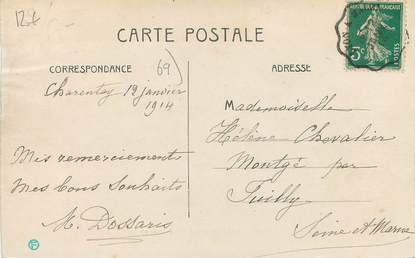 12€
CARTE POSTALE
RÉPUBLIQUE FRANÇAISE
5c
POSTES
CORRESPONDANCE
69
ADRESSE
Charentay 12 janvier
1914
Mes remerciements
Mes bons Souhaits
M. Dossaris
Mademoiselle
Hélène Chevalier
Montgé par
Juilly
Seine et Marne